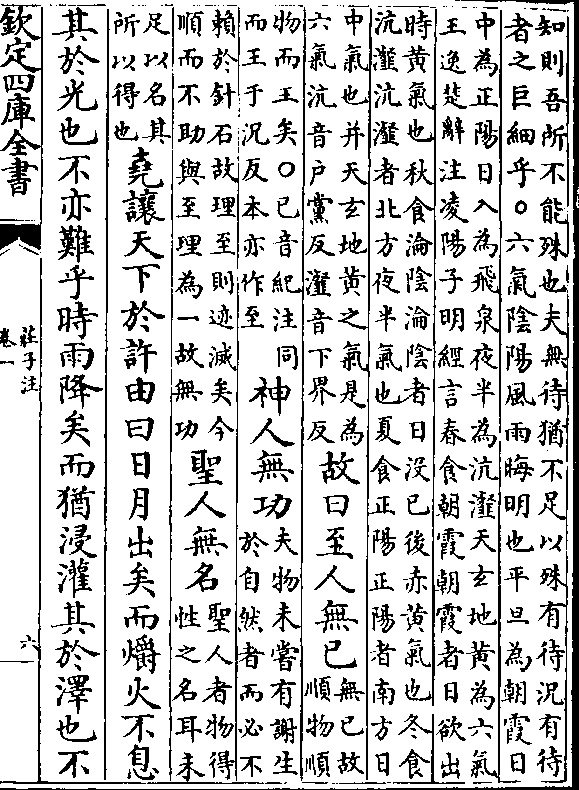 知則吾所不能殊也夫無待猶不足以殊有待況有待
者之巨細乎○六氣陰陽風雨晦明也平旦為朝霞日
中為正陽日入為飛泉夜半為沆瀣天玄地黃為六氣
王逸楚辭注凌陽子明經言春食朝霞朝霞者日欲出
時黃氣也秋食淪陰淪陰者日沒已後赤黃氣也冬食
沆瀣沆瀣者北方夜半氣也夏食正陽正陽者南方日
中氣也并天玄地黃之氣是為
六氣沆音戶黨反瀣音下界反
故曰至人無已
無已故
順物順
物而王矣○已音紀注同
而王于況反本亦作至
神人無功
夫物未嘗有謝生
於自然者而必不
賴於針石故理至則迹滅矣今
順而不助與至理為一故無功
聖人無名
聖人者物得
性之名耳未
足以名其
所以得也
堯讓天下於許由曰日月出矣而爝火不息
其於光也不亦難乎時雨降矣而猶浸灌其於澤也不
欽定四庫全書
莊子注
卷一
六